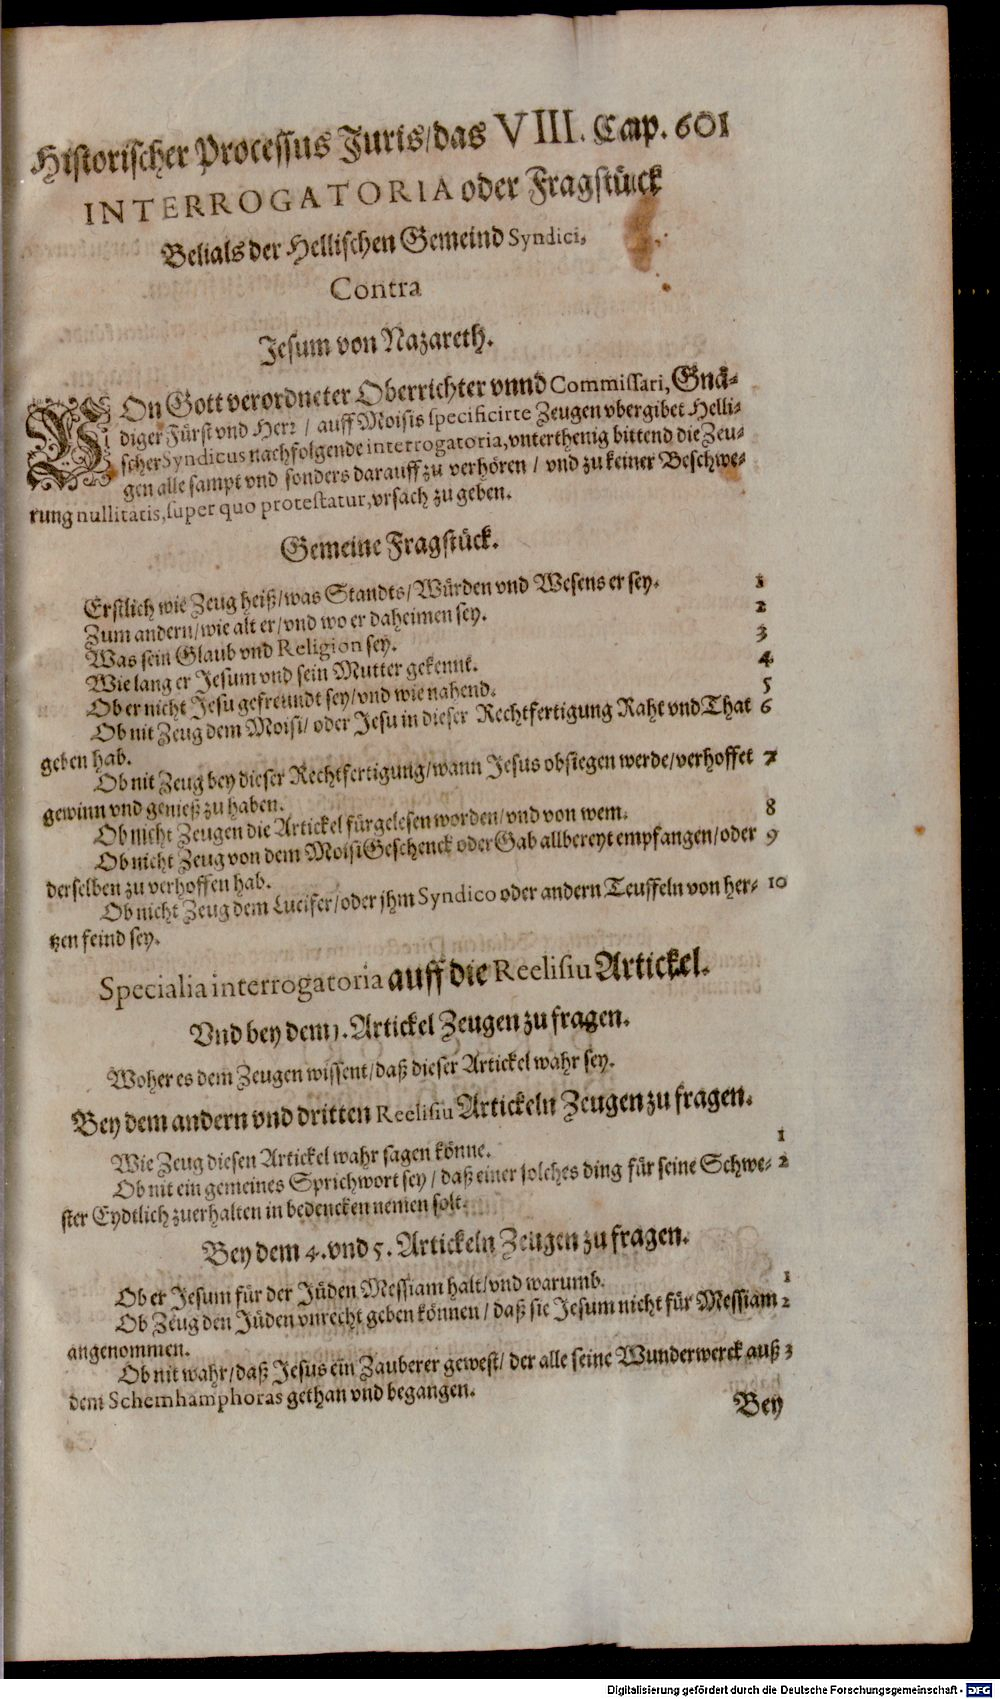 Historischer Processus Juris/das VIII. Cap. 601
INTERROGATORIA oder Fragstück
Belials der Hellischen Gemeind Syndici,
Contra
Jesum von Nazareth.
VOn Gott verordneter Oberrichter vnnd Commissari, Gnä-
diger Fürst vnd Herr / auff Moisis specificirte Zeugen vbergibet Helli-
scher Syndicus nachfolgende interrogatoria, vnterthenig bittend die Zeu-
gen alle sampt vnd sonders darauff zu verhören / vnd zu keiner Beschwe-
rung nullitatis, super quo protestatur, vrsach zu geben.
Gemeine Fragstück.
Erstlich wie Zeug heiß/was Standts/Würden vnd Wesens er sey. 1
Zum andern/wie alt er/vnd wo er daheimen sey. 2
Was sein Glaub vnd Religion sey. 3
Wie lang er Jesum vnd sein Mutter gekennt. 4
Ob er nicht Jesu gefreundt sey/vnd wie nahend. 5
Ob nit Zeug dem Moisi/oder Jesu in dieser Rechtfertigung Raht vnd That 6
geben hab.
Ob nit Zeug bey dieser Rechtfertigung/wann Jesus obsiegen werde/verhoffet 7
gewinn vnd genieß zu haben.
Ob nicht Zeugen die Artickel fürgelesen worden/vnd von wem. 8
Ob nicht Zeug von dem Moisi Geschenck oder Gab allbereyt empfangen/oder 9
derselben zu verhoffen hab.
Ob nicht Zeug dem Lucifer/oder jhm Syndico oder andern Teuffeln von her- 10
tzen feind sey.
Specialia interrogatoria auff die Reelisiu Artickel.
Vnd bey dem 1. Artickel Zeugen zu fragen.
Woher es dem Zeugen wissent/daß dieser Artickel wahr sey.
Bey dem andern vnd dritten Reelisiu Artickeln Zeugen zu fragen.
Wie Zeug diesen Artickel wahr sagen könne. 1
Ob nit ein gemeines Sprichwort sey / daß einer solches ding für seine Schwe- 2
ster Eydtlich zuerhalten in bedencken nemen solt.
Bey dem 4. vnd 5. Artickeln Zeugen zu fragen.
Ob er Jesum für der Jüden Messiam halt/vnd warumb. 1
Ob Zeug den Jüden vnrecht geben können / daß sie Jesum nicht für Messiam 2
angenommen.
Ob nit wahr/daß Jesus ein Zauberer gewest/ der alle seine Wunderwerck auß 3
dem Schemhamphoras gethan vnd begangen.
Bey
Digitalisierung gefördert durch die Deutsche Forschungsgemeinschaft - DFG